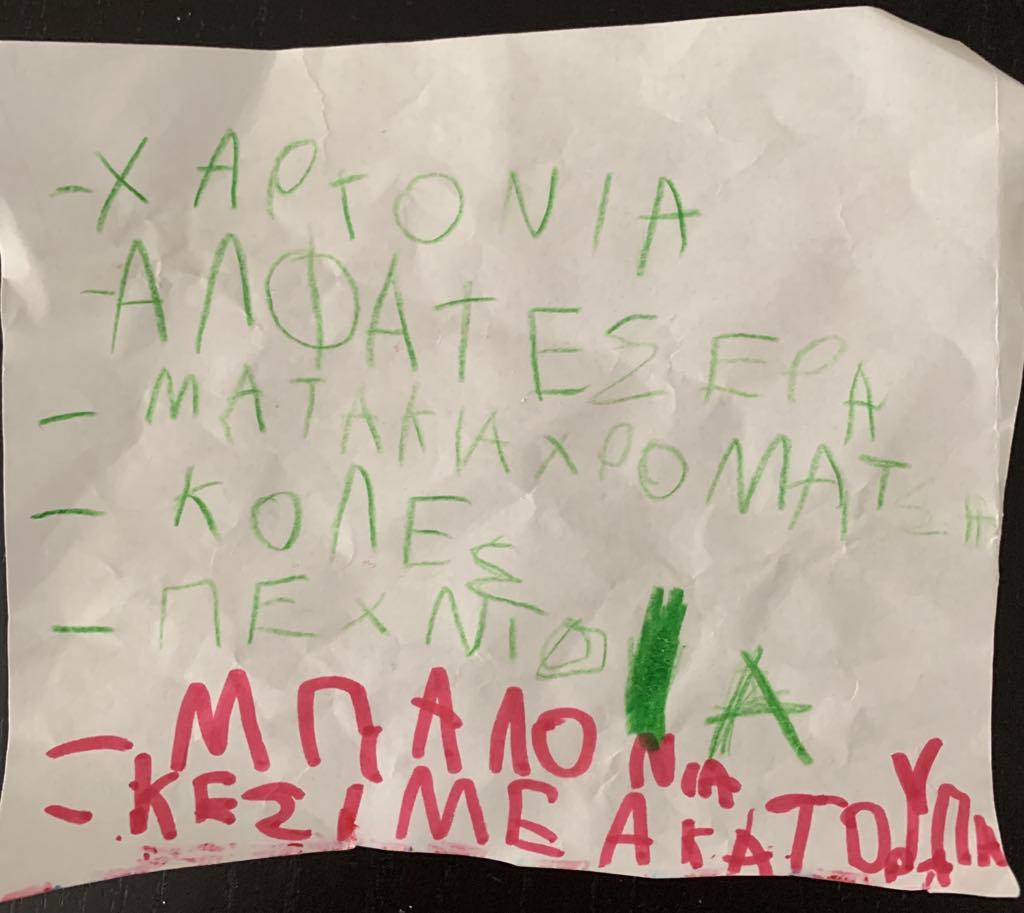 -ΧΑΡΤΟΝΙΑ
-ΑΛΦΑΤΕΣΕΡΑ
- ΜΑΤΑΚΙΑ ΧΡΟΜΑΤΣΗ
- ΚΟΛΕΣ
- ΠΕΧΝΙΔΙΑ
- ΜΠΑΛΟΝΙΑ
- ΚΕΣΙ ΜΕ ΑΚΑΤΟΥΡΑ